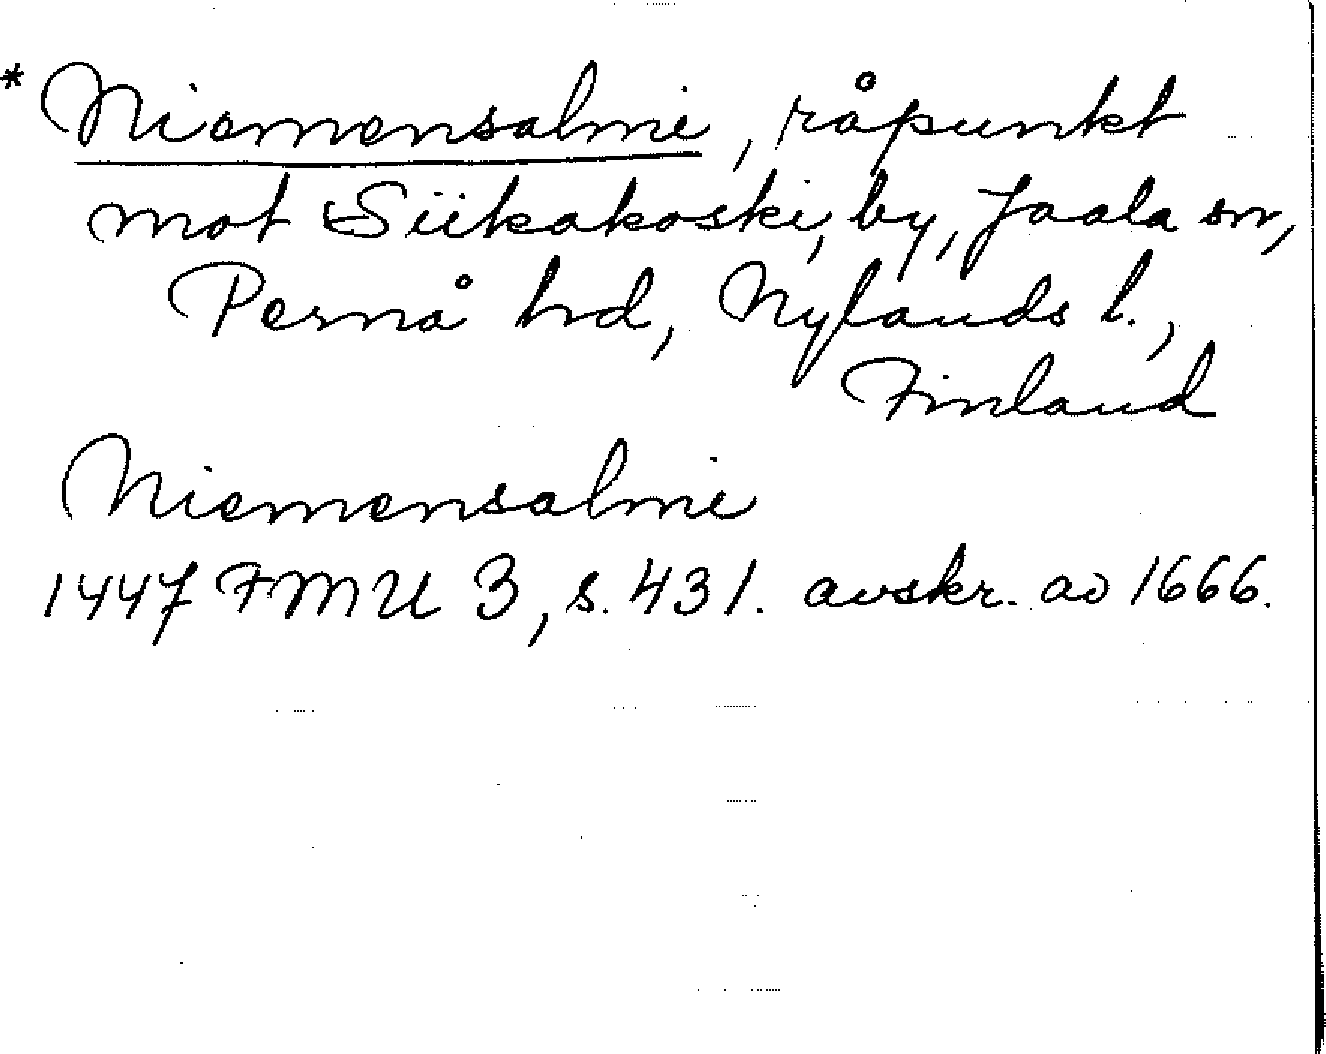 * Niemensalmi, råpunkt
mot Siikakoski, by, Jaala sn,
Pernå hd, Nylands l.,
Finland
Niemensalmi
1447 FMU 3, s. 431. avskr. av 1666.